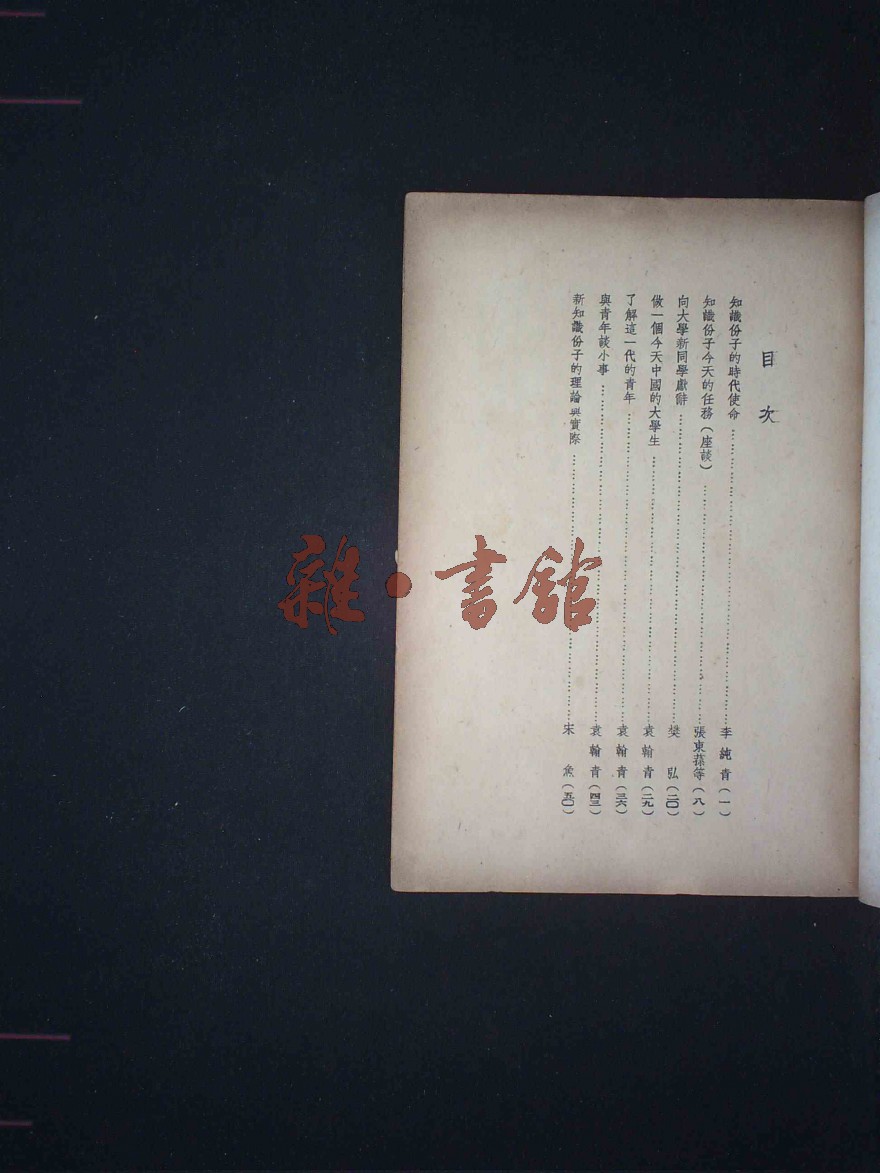 目次
知識份子的時代使命……李純青(一)
知識份子今天的任務(座談)……張東蓀等(八)
向大學新同學獻辭……樊弘(二〇)
做一個今天中國的大學生……袁翰青(二九)
了解這一代的青年……袁翰青(三六)
與青年談小事……袁翰青(四三)
新知識份子的理論與實際……宋(五〇)
雜·書館